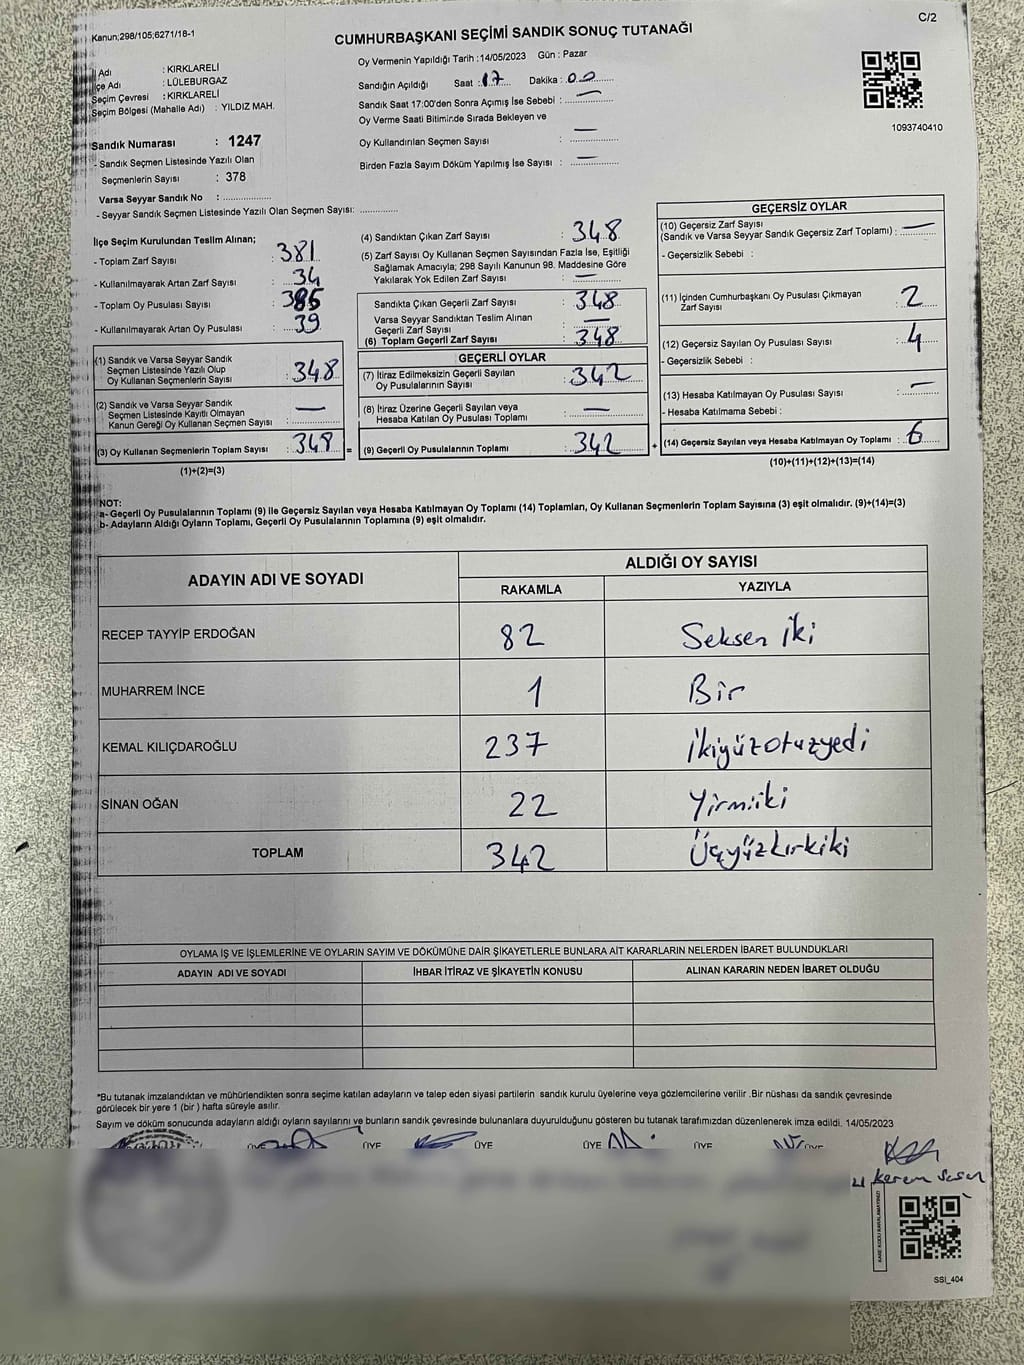 Kanun;298/105;6271/18-1
C/2
CUMHURBAŞKANI SEÇİMİ SANDIK SONUÇ TUTANAĞI
İl Adı : KIRKLARELİ
İlçe Adı : LÜLEBURGAZ
Seçim Çevresi : KIRKLARELİ
Seçim Bölgesi (Mahalle Adı) : YILDIZ MAH.
Sandık Numarası : 1247
- Sandık Seçmen Listesinde Yazılı Olan
Seçmenlerin Sayısı : 378
Varsa Seyyar Sandık No : ..............
- Seyyar Sandık Seçmen Listesinde Yazılı Olan Seçmen Sayısı: ...........
Oy Vermenin Yapıldığı Tarih :14/05/2023 Gün : Pazar
Sandığın Açıldığı Saat : 17 Dakika : 00
Sandık Saat 17:00'den Sonra Açımış İse Sebebi : —
Oy Verme Saati Bitiminde Sırada Bekleyen ve
Oy Kullandırılan Seçmen Sayısı : —
Birden Fazla Sayım Döküm Yapılmış İse Sayısı : —
1093740410
İlçe Seçim Kurulundan Teslim Alınan;
- Toplam Zarf Sayısı : 381
- Kullanılmayarak Artan Zarf Sayısı : 34
- Toplam Oy Pusulası Sayısı : 385
- Kullanılmayarak Artan Oy Pusulası : 39
(1) Sandık ve Varsa Seyyar Sandık
Seçmen Listesinde Yazılı Olup
Oy Kullanan Seçmenlerin Sayısı : 348
(2) Sandık ve Varsa Seyyar Sandık
Seçmen Listesinde Kayıtlı Olmayan
Kanun Gereği Oy Kullanan Seçmen Sayısı : —
(3) Oy Kullanan Seçmenlerin Toplam Sayısı : 348 =
(1)+(2)=(3)
(4) Sandıktan Çıkan Zarf Sayısı : 348
(5) Zarf Sayısı Oy Kullanan Seçmen Sayısından Fazla İse, Eşitliği
Sağlamak Amacıyla; 298 Sayılı Kanunun 98. Maddesine Göre
Yakılarak Yok Edilen Zarf Sayısı : —
Sandıkta Çıkan Geçerli Zarf Sayısı : 348
Varsa Seyyar Sandıktan Teslim Alınan
Geçerli Zarf Sayısı : —
(6) Toplam Geçerli Zarf Sayısı : 348
GEÇERLİ OYLAR
(7) İtiraz Edilmeksizin Geçerli Sayılan
Oy Pusulalarının Sayısı : 342
(8) İtiraz Üzerine Geçerli Sayılan veya
Hesaba Katılan Oy Pusulası Toplamı : —
(9) Geçerli Oy Pusulalarının Toplamı : 342 +
GEÇERSİZ OYLAR
(10) Geçersiz Zarf Sayısı
(Sandık ve Varsa Seyyar Sandık Geçersiz Zarf Toplamı) : —
- Geçersizlik Sebebi :
(11) İçinden Cumhurbaşkanı Oy Pusulası Çıkmayan
Zarf Sayısı : 2
(12) Geçersiz Sayılan Oy Pusulası Sayısı : 4
- Geçersizlik Sebebi :
(13) Hesaba Katılmayan Oy Pusulası Sayısı : —
- Hesaba Katılmama Sebebi :
(14) Geçersiz Sayılan veya Hesaba Katılmayan Oy Toplamı : 6
(10)+(11)+(12)+(13)=(14)
NOT:
a- Geçerli Oy Pusulalarının Toplamı (9) ile Geçersiz Sayılan veya Hesaba Katılmayan Oy Toplamı (14) Toplamları, Oy Kullanan Seçmenlerin Toplam Sayısına (3) eşit olmalıdır. (9)+(14)=(3)
b- Adayların Aldığı Oyların Toplamı, Geçerli Oy Pusulalarının Toplamına (9) eşit olmalıdır.
ADAYIN ADI VE SOYADI
ALDIĞI OY SAYISI
RAKAMLA YAZIYLA
RECEP TAYYİP ERDOĞAN 82 Seksen İki
MUHARREM İNCE 1 Bir
KEMAL KILIÇDAROĞLU 237 İkiyüzotuzyedi
SİNAN OĞAN 22 Yirmiiki
TOPLAM 342 Üçyüzkırkiki
OYLAMA İŞ VE İŞLEMLERİNE VE OYLARIN SAYIM VE DÖKÜMÜNE DAİR ŞİKAYETLERLE BUNLARA AİT KARARLARIN NELERDEN İBARET BULUNDUKLARI
ADAYIN ADI VE SOYADI İHBAR İTİRAZ VE ŞİKAYETİN KONUSU ALINAN KARARIN NEDEN İBARET OLDUĞU
*Bu tutanak imzalandıktan ve mühürlendikten sonra seçime katılan adayların ve talep eden siyasi partilerin sandık kurulu üyelerine veya gözlemcilerine verilir .Bir nüshası da sandık çevresinde
görülecek bir yere 1 (bir ) hafta süreyle asılır.
Sayım ve döküm sonucunda adayların aldığı oyların sayılarını ve bunların sandık çevresinde bulunanlara duyurulduğunu gösteren bu tutanak tarafımızdan düzenlenerek imza edildi. 14/05/2023
ÜYE ÜYE ÜYE ÜYE ÜYE
Kerem
SSİ_404